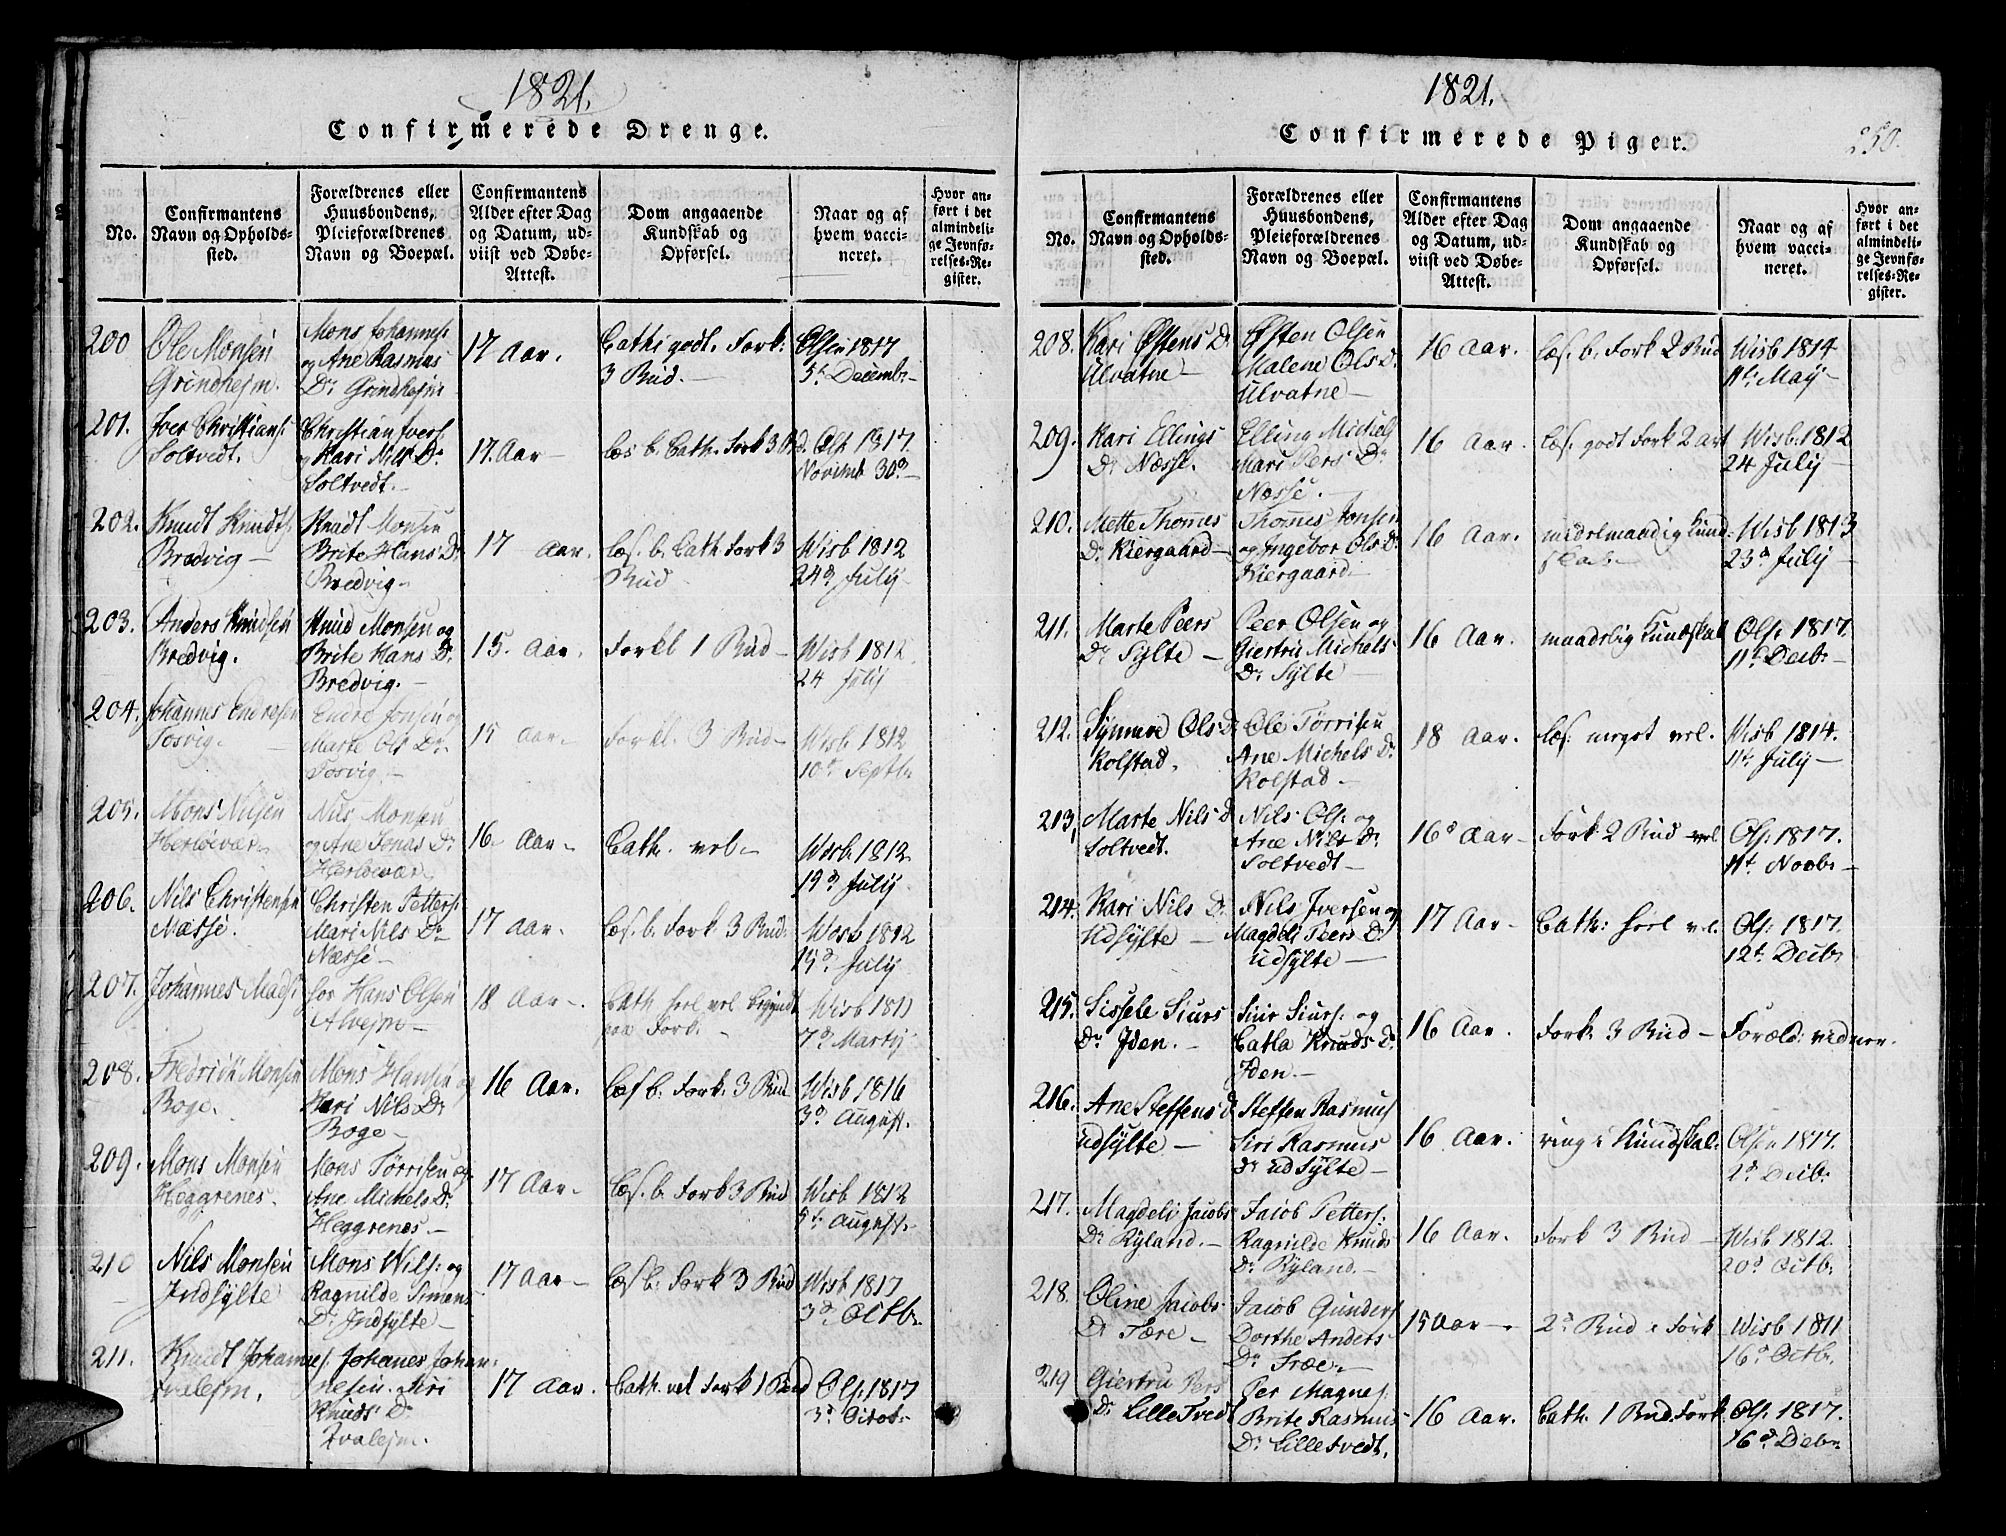 1821.
Confirmerede Drenge.
No.
Confirmantens Navn og Opholdssted.
Forældrenes eller Huusbondens, Pleieforældrenes Navn og Boepæl.
Confirmantens Alder efter Dag og Datum, udviist ved Døbe-Attest.
Dom angaaende Kundskab og Opførsel.
Naar og af hvem vaccineret.
Hvor anført i det almindelige Jevnførelses-Register.
200 Ole Monsen Grindhejm. Mons Johannes: og Ane Rasmus Dr Grindhejm 17 Aar. Cath: godt. Fork: 3 Bud. Olsen 1817 5t Decembr
201. Iver Christians: Soltvedt. Christian Ivers: og Kari Nils Dr Soltvedt. 17. Aar læs b. Cath. Fork 3 B:d. Ols 1817. Novemb 30d
202. Knudt Knuds: Bredvig Knudt Monsen Brite Hans Dr Bredvig 17 Aar. læs. b. Cath. Fork 3 Bud Wisb 1812 24d July
203. Anders Knudsen Bredvig. Knud Monsen og Brite Hans Dr Bredvig. 15. Aar. Forkl 1 Bud Wisb 1812. 24 July
204. Johannes Endresen Tosvig. Endre Jonsen og Marte Ols Dr Tosvig. 15 Aar Forkl. 3 Bud Wisb 1812 10d Septbr
205. Mons Nilsen Herløevær Nils Monsen og Ane Jonas Dr Herløevær 16 Aar Cath. vel Wisb 1812. 19d July
206. Nils Christensen Næsse. Christen Petters: Mari Nils Dr Næsse 17 Aar. læs. b. Fork 3 Bud. Wisb 1812 19d July
207. Johannes Mads: hos Hans Olsen Alvejm 18 Aar. Cath heel vel begyndt paa Fork. Wisb 1811 7d Marty
208. Fredrich Monsen Boge. Mons Hansen og Kari Nils Dr Boge 16 Aar. læs b. Fork. 3 Bud Wisb 1816 3d August.
209. Mons Monsen Heggrenes. Mons Tørrisen og Ane Michels Dr Heggrenes. 17 Aar. læs. b. Fork 3 Bud Wisb 1812 5t August.
210 Nils Monsen Indsylte Mons Nils: og Ragnilde Simons Dr Indsylte 17 Aar læs b. Fork 3 Bud Wisb 1817 3d Octbr
211. Knudt Johannes: Johanes Johannesen. Siri Knuds Dr 17 Aar. Cath. vel Fork 1 Bud Ols. 1817 3d Octobr
1821.
Confirmerede Piger.
250.
No.
Confirmantens Navn og Opholdssted.
Forældrenes eller Huusbondens, Pleieforældrenes Navn og Boepæl.
Confirmantens Alder efter Dag og Datum, udviist ved Døbe-Attest.
Dom angaaende Kundskab og Opførsel.
Naar og af hvem vaccineret.
Hvor anført i det almindelige Jevnførelses-Register.
208. Kari Østens D. Ulvatne Østen Olsen Malene Ols Dr Ulvatne 16 Aar. læs. b. Fork 2 Bud Wisb 1814 11t May
209. Kari Ellings Dr Næsse. Elling Michels Mari Pers Dr Næsse. 16 Aar. læs. godt Fork 2 art Wisb. 1812 24 July
210. Mette Thomes Dr Kiergaard Thomes Jonsen og Ingebor Ols Dr Kiergaard 16 Aar. midelmaadig Kundskab. Wisb 1813 23d July
211. Marte Peers Dr Sylte Peer Olsen og Giertru Michels Dr Sylte 16 Aar. maadelig Kundskab Ols. 1817. 11d Decbr
212. Synneve Ols D Kolstad. Ole Tørrisen Ane Michels Dr Kolstad 18 Aar. læs. meget vel. Wisb 1814. 11t July
213, Marte Nils D Soltvedt. Nils Ols: og Ane Nils Dr Soltvedt 16 Aar Fork 2 Bud vel Ols. 1817. 11t. Novbr
214. Kari Nils Dr Udsylte Nils Iversen og Magdeli Peers Dr Udsylte 17 Aar Cath: heel vel. Ols: 1817. 12t. Decbr
215. Sissele Siurs Dr Iden. Siur Siurs: og Catla Knuds Dr Iden. 16 Aar. Fork. 3 Bud Foræld: vidner.
216. Ane Steffens D. Udsylte Steffen Rasmus Siri Rasmus Dr Udsylte 16 Aar. ringe Kundskab. Olsen 1817. 2d Decbr
217. Magdeli Jacobs Dr Ryland. Jacob Petters: Ragnilde Knuds Dr Ryland. 16 Aar. Fork 3 Bud Wisb 1812. 20d Octbr
218. Oline Jacobs Dr Fære Jacob Gunders Dorthe Anders Dr Fræe 15 Aar 2d Bud i Fork Wisb 1811 16d Octbr.
219 Giertru Pers Dr Lille Tvedt Per Magnes: Brite Rasmus Dr Lilletvedt. 16 Aar. Cath. 1 Bud. Fork Ols. 1817. 16d. Decbr